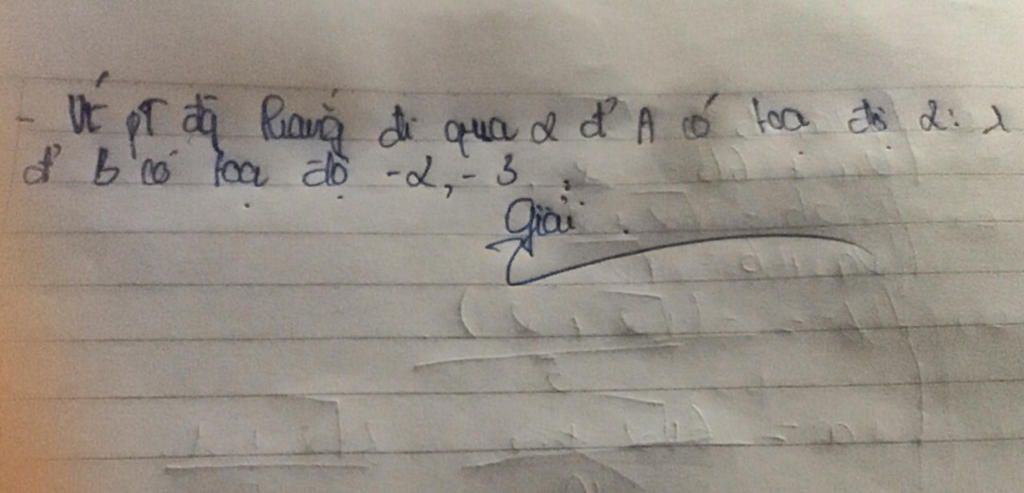 - Vt pT đg thẳng đi qua 2 đ' A có toạ độ 2: 1
đ' B có toạ độ -2, -3.
Giải.